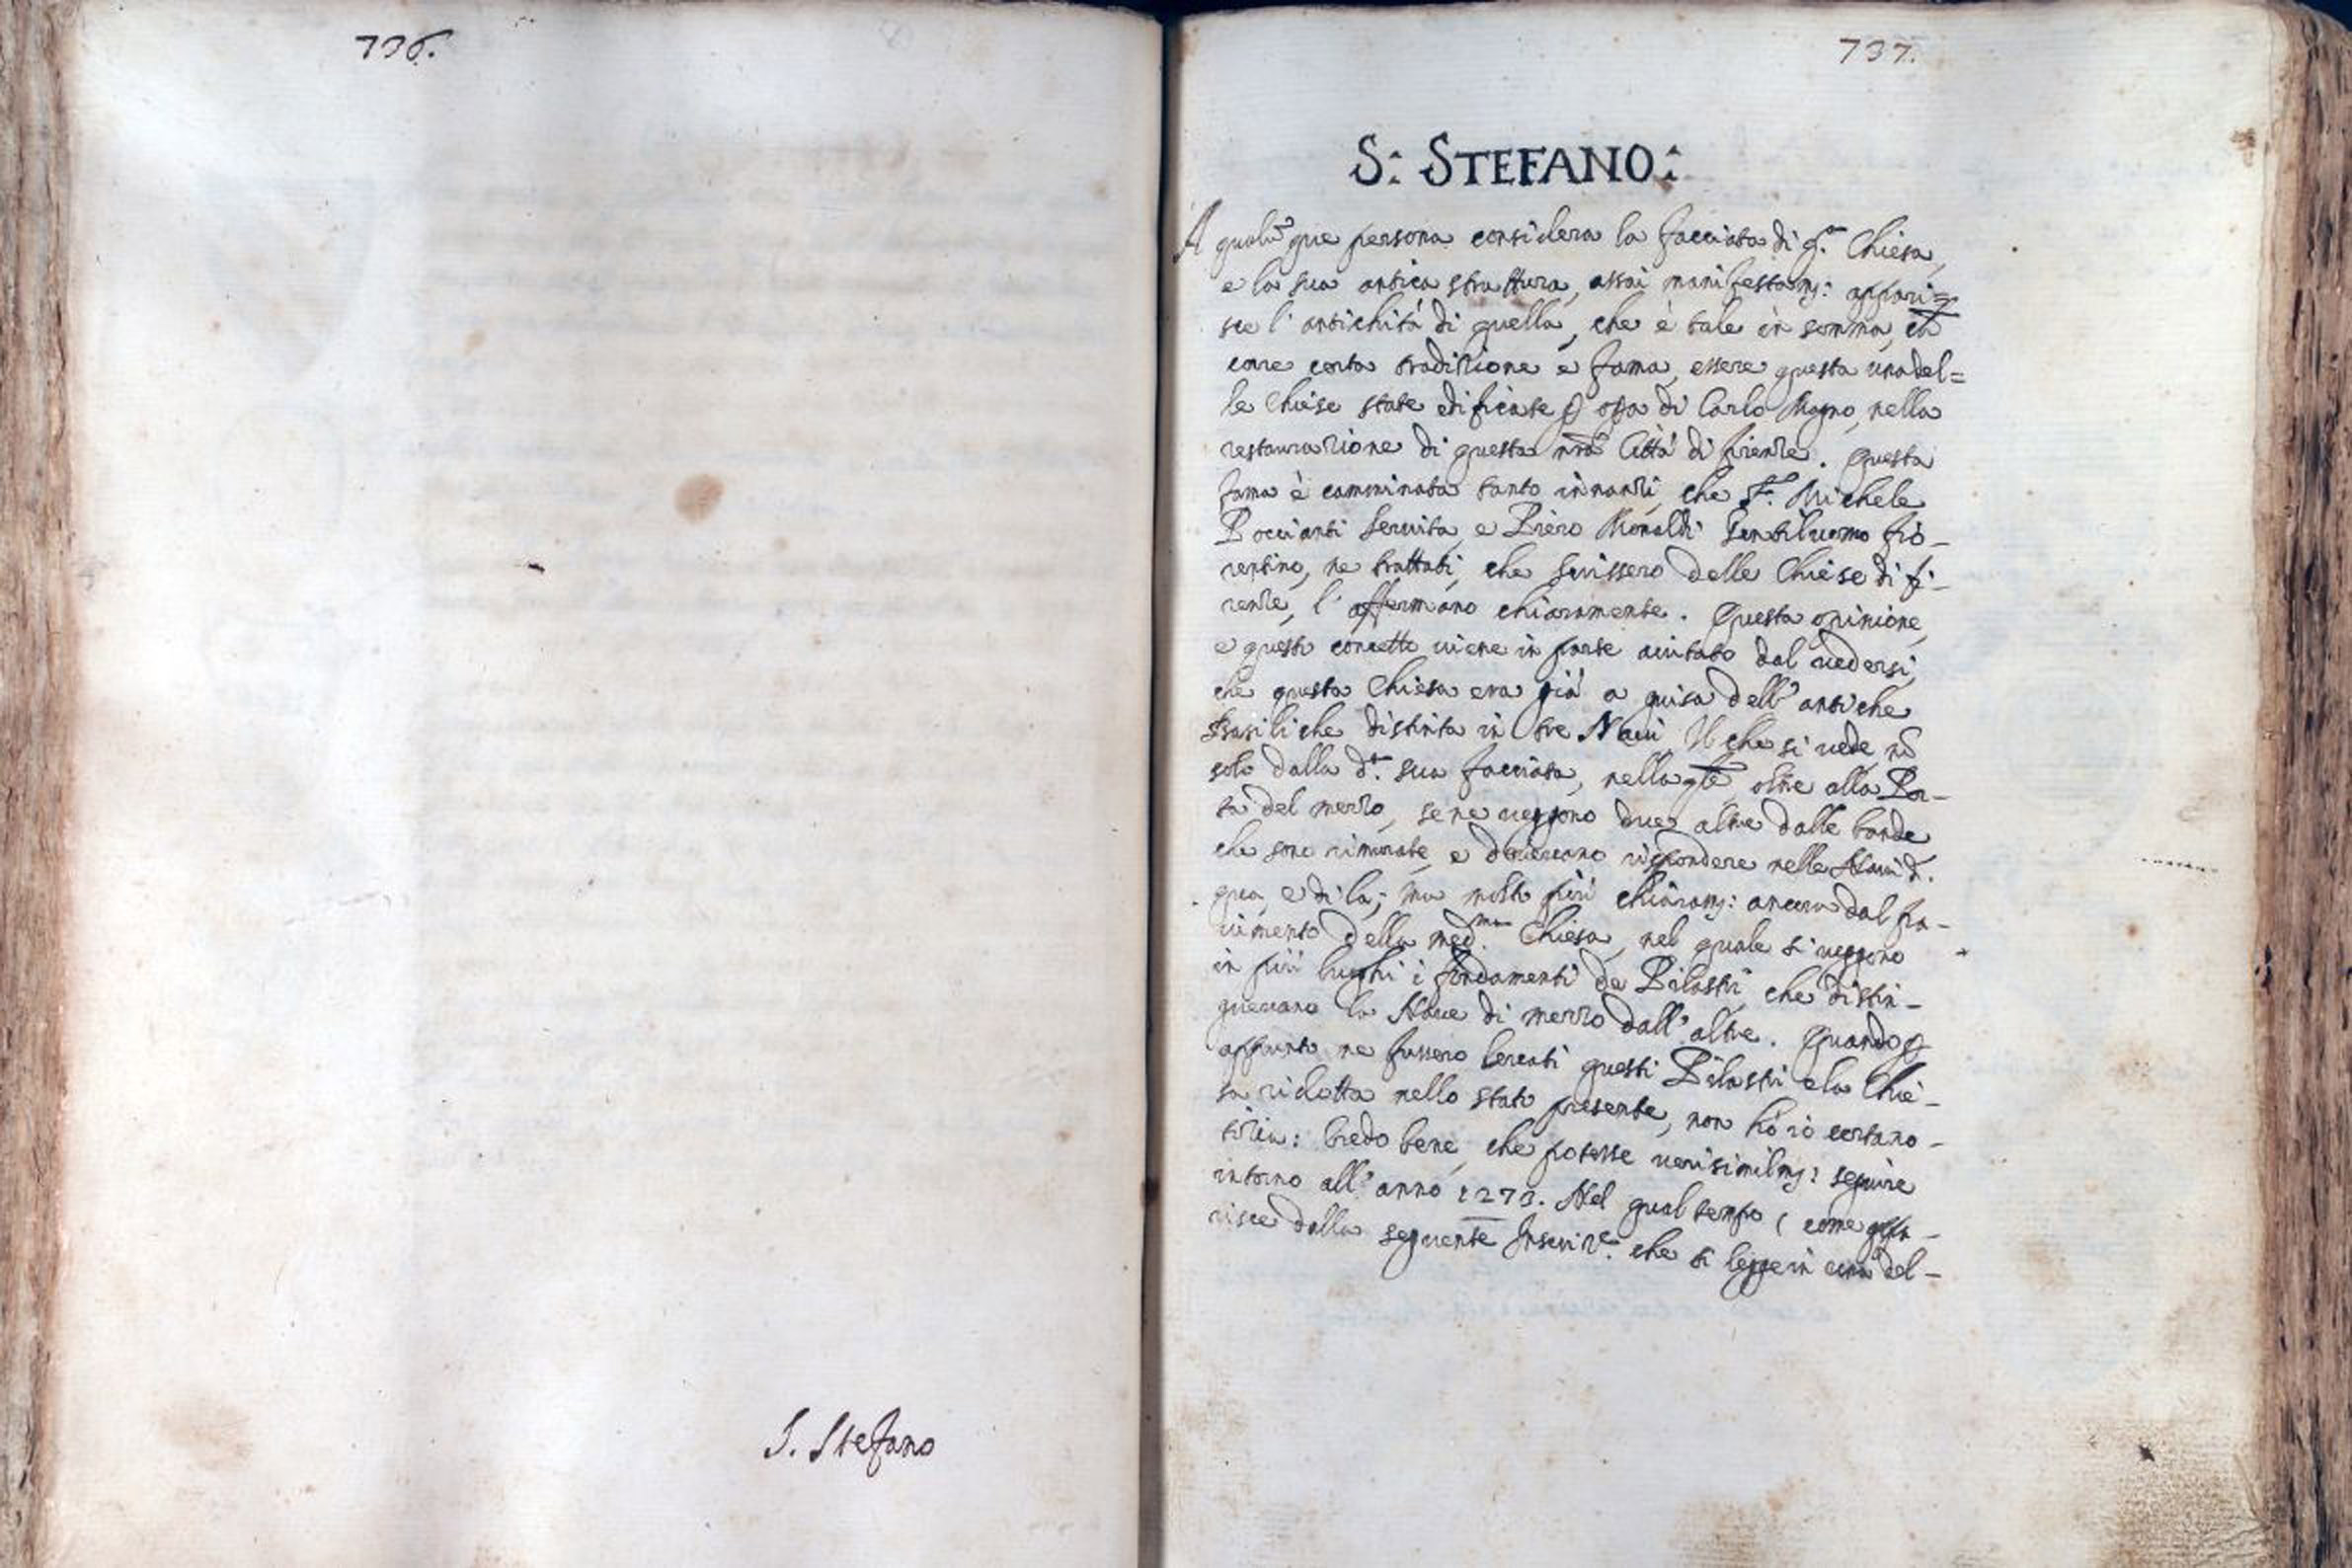 736.
S. Stefano
737.
S: STEFANO:
A qualũque persona considera la facciata di q.ᵃ Chiesa,
e la sua antica struttura, assai manifestamẽ: appari=
sce l'antichità di quella, che è tale in somma, ch
corre certa tradizione e fama, essere questa una del=
le Chiese state edificate ꝑ opa di Carlo Magno, nella
restaurazione di questa nr̃a Città di Firenze. Questa
fama è camminata tanto innanzi, che F. Michele
Poccianti Servita, e Piero Monaldi Gentiluomo Fio-
rentino, ne trattati, che scrissero delle Chiese di Fi-
renze, l'affermano chiaramente. Questa opinione,
e questo concetto viene in parte aiutato dal vedersi,
che questa Chiesa era già a guisa dell'antiche
Basiliche distinta in tre Navi. Il che si vede nõ
solo dalla d.ᵃ sua facciata, nella qle oltre alla Por-
ta del mezzo, se ne veggono due altre dalle bande
che sono rimurate, e dovevano rispondere nelle Navi d.
qua, e di la; ma molto più chiaramẽ: ancora dal pa-
vimento della med.ᵐᵃ Chiesa, nel quale si veggono
in più luoghi i fondamenti de Pilastri, che distin-
guevano la Nave di mezzo dall'altre. Quando ꝑ
appunto ne fussero levati questi Pilastri e la Chie-
sa ridotta nello stato presente, non hò io certa no-
tizia: Credo bene, che potesse verisimilmẽ: seguire
intorno all'anno 1273. Nel qual tempo (come appa-
risce dalla seguente Inscriz.ᵉ che si legge in una del-